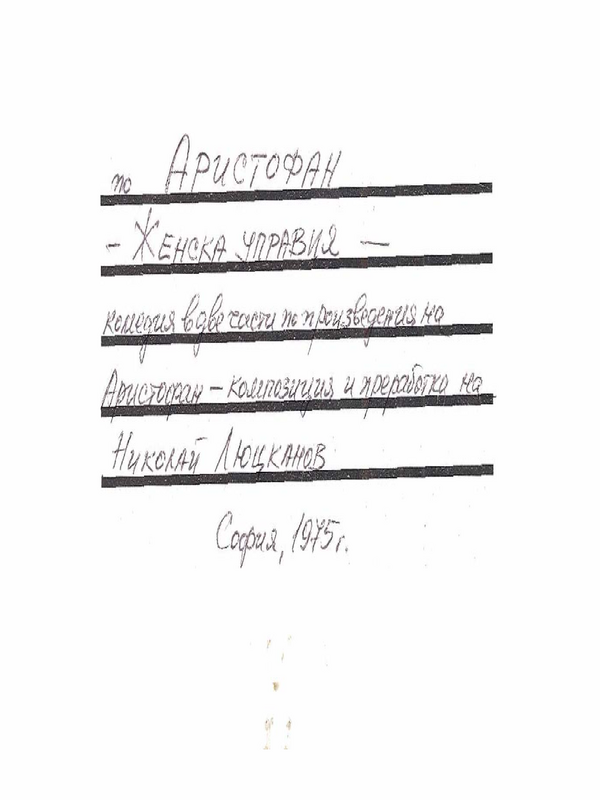 по АРИСТОФАН
- ЖЕНСКА УПРАВИЯ —
комедия в две части по произведения на
Аристофан – композиция и преработка на
НИКОЛАЙ ЛЮЦКАНОВ
София, 1975г.